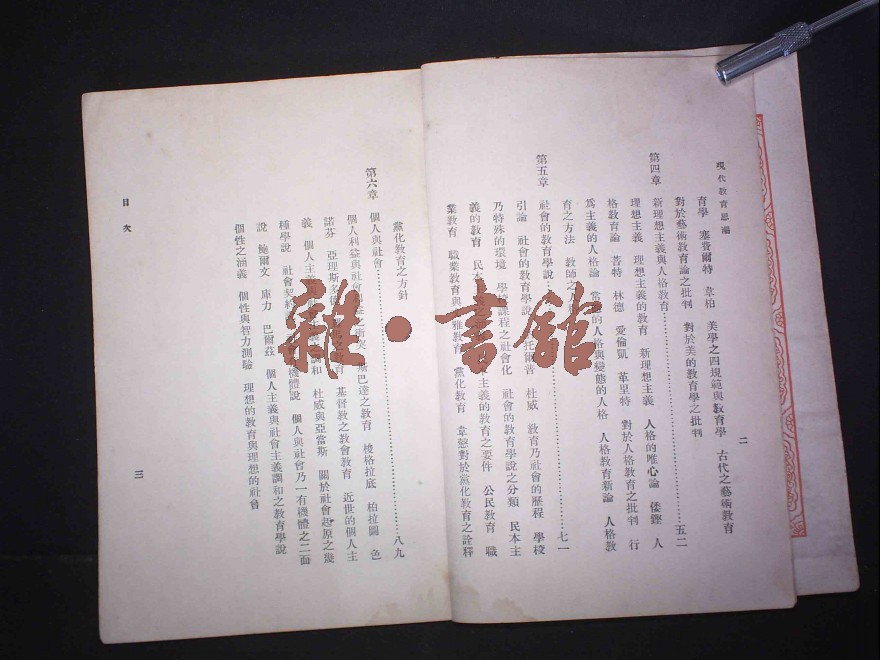 現代教育思潮
二
育學　塞費爾特　韋柏　美學之四規範與敎育學　古代之藝術敎育
對於藝術敎育論之批判　對於美的敎育學之批判
第四章　新理想主義與人格敎育……五二
理想主義　理想主義的敎育　新理想主義　人格的唯心論　倭鏗　人
格敎育論　菩特　林德　愛倫凱　革里特　對於人格敎育之批判　行
爲主義的人格論　常態的人格與變態的人格　人格敎育新論　人格敎
育之方法　敎師之人
第五章　社會的敎育學說……七一
引論　社會的敎育學說　托爾普　杜威　敎育乃社會的歷程　學校
乃特殊的環境　學校課程之社會化　社會的敎育學說之分類　民本主
義的敎育　民本主義的敎育之要件　公民敎育　職
業敎育　職業敎育與　雅敎育　黨化敎育　韋慤對於黨化敎育之詮釋
黨化敎育之方針
第六章　個人與社會……八九
個人利益與社會利益之衝突　斯巴達之敎育　梭格拉底　柏拉圖　色
諾芬　亞理斯多德　敎育　基督敎之敎會敎育　近世的個人主
義　個人主義與　主義調和　杜威與亞當斯　關於社會起原之幾
種學說　社會契約　機體說　個人與社會乃一有機體之二面
說　鮑爾文　庫力　巴爾茲　個人主義與社會主義調和之敎育學說
個性之涵義　個性與智力測驗　理想的敎育與理想的社會
目次
三
雜·書館